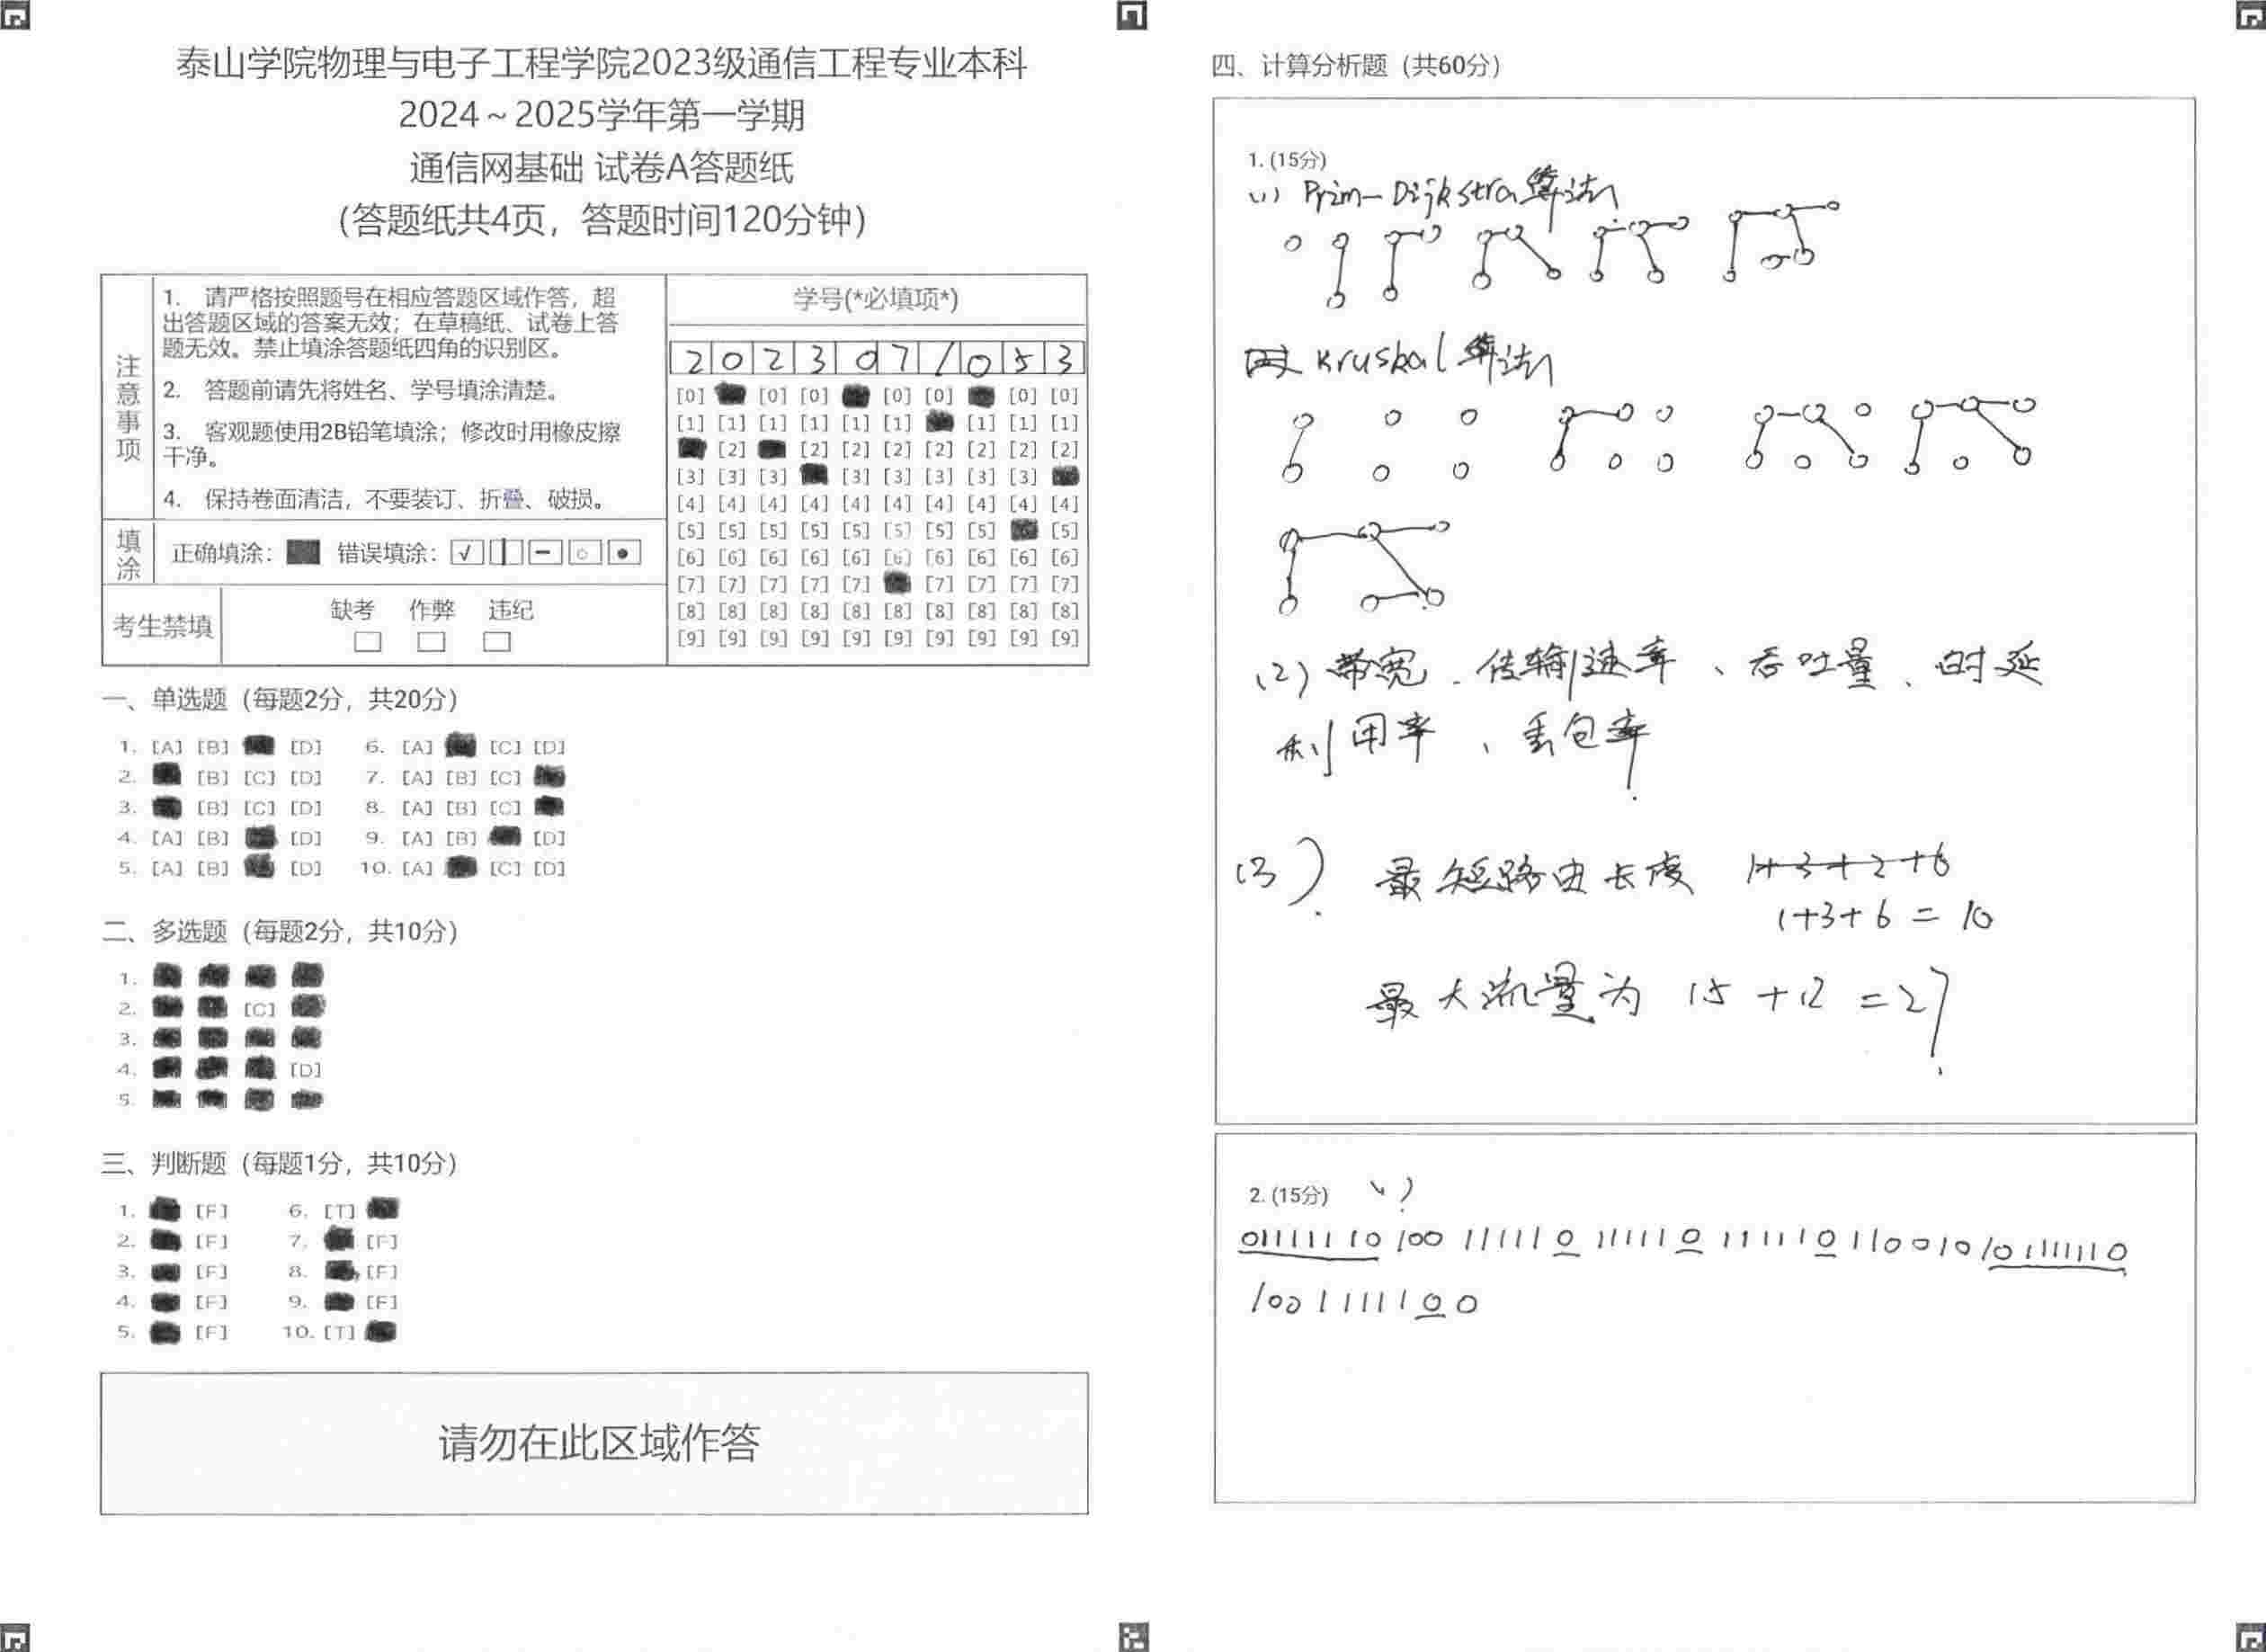 泰山学院物理与电子工程学院2023级通信工程专业本科
2024～2025学年第一学期
通信网基础 试卷A答题纸
(答题纸共4页，答题时间120分钟)
注意事项
1. 请严格按照题号在相应答题区域作答，超
出答题区域的答案无效；在草稿纸、试卷上答
题无效。禁止填涂答题纸四角的识别区。
2. 答题前请先将姓名、学号填涂清楚。
3. 客观题使用2B铅笔填涂；修改时用橡皮擦
干净。
4. 保持卷面清洁，不要装订、折叠、破损。
填涂
正确填涂： 错误填涂：
考生禁填
缺考 作弊 违纪
学号(*必填项*)
2 0 2 3 0 7 1 0 5 3
[0] [0] [0] [0] [0] [0] [0]
[1] [1] [1] [1] [1] [1] [1] [1] [1]
[2] [2] [2] [2] [2] [2] [2] [2]
[3] [3] [3] [3] [3] [3] [3] [3]
[4] [4] [4] [4] [4] [4] [4] [4] [4] [4]
[5] [5] [5] [5] [5] [5] [5] [5] [5]
[6] [6] [6] [6] [6] [6] [6] [6] [6] [6]
[7] [7] [7] [7] [7] [7] [7] [7] [7]
[8] [8] [8] [8] [8] [8] [8] [8] [8] [8]
[9] [9] [9] [9] [9] [9] [9] [9] [9] [9]
一、单选题（每题2分，共20分）
1. [A] [B] [D] 6. [A] [C] [D]
2. [B] [C] [D] 7. [A] [B] [C]
3. [B] [C] [D] 8. [A] [B] [C]
4. [A] [B] [D] 9. [A] [B] [D]
5. [A] [B] [D] 10. [A] [C] [D]
二、多选题（每题2分，共10分）
1.
2. [C]
3.
4. [D]
5.
三、判断题（每题1分，共10分）
1. [F] 6. [T]
2. [F] 7. [F]
3. [F] 8. [F]
4. [F] 9. [F]
5. [F] 10. [T]
请勿在此区域作答
四、计算分析题（共60分）
1. (15分)
(1) Prim-Dijkstra算法
Kruskal算法
(2) 带宽、传输速率、吞吐量、时延
利用率、丢包率
(3) 最短路由长度 1+3+2+6
1+3+6=10
最大流量为 15+12=27
2. (15分)
01111110 100 1111101111101111101100101001111110
10011111100